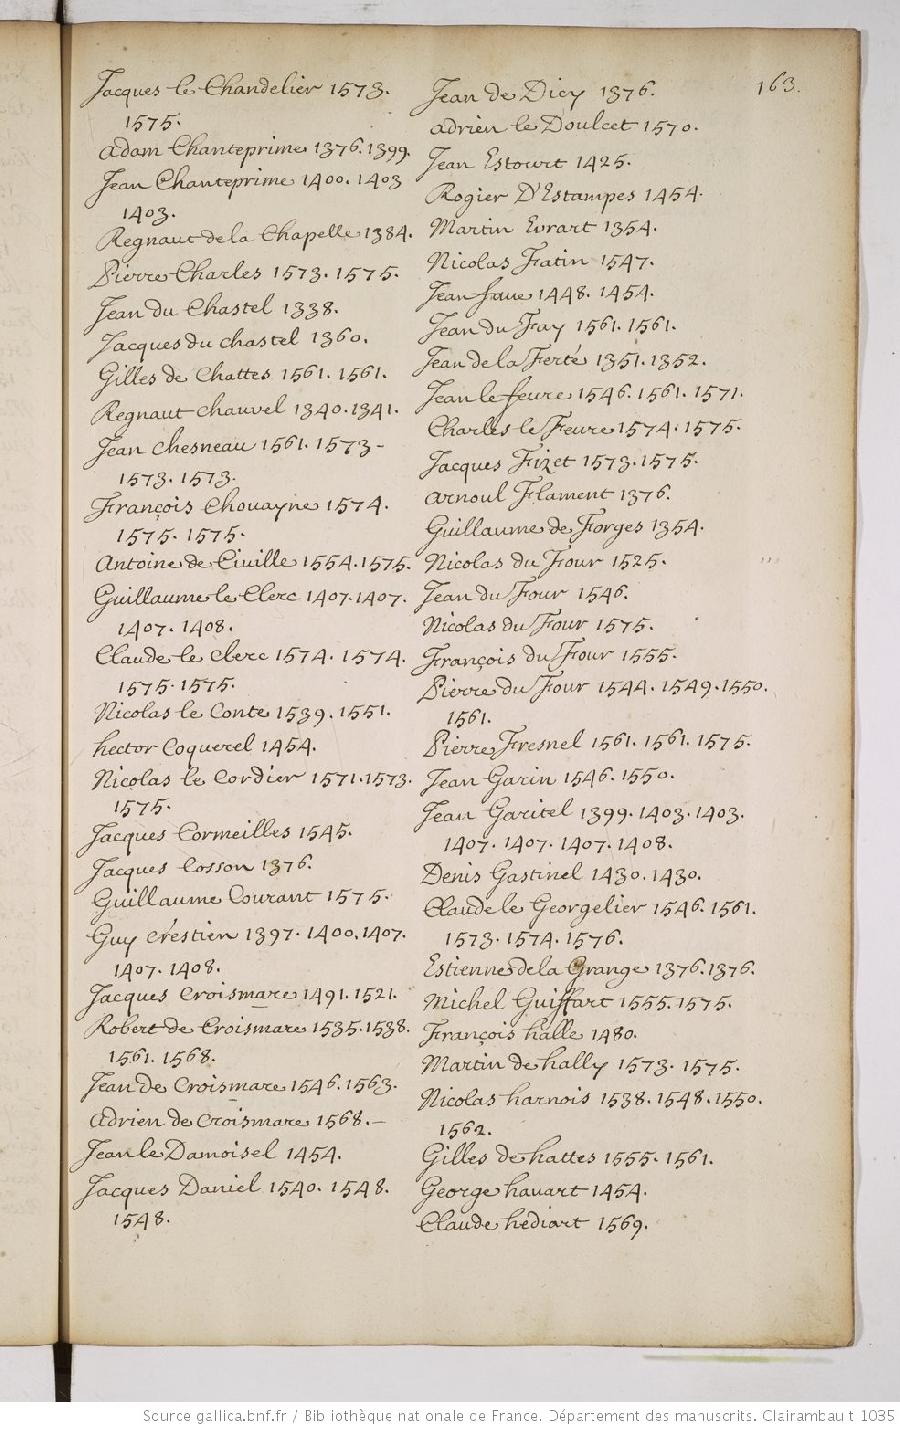 163.
Jacques le Chandelier 1573.
1575.
Adam Chanteprime 1376. 1399.
Jean Chanteprime 1400. 1403
1403.
Regnaut de la Chapelle 1384.
Pierre Charles 1573. 1575.
Jean du Chastel 1338.
Jacques du chastel 1360.
Gilles de Chattes 1561. 1561.
Regnaut chauvel 1340. 1341.
Jean chesneau 1561. 1573-
1573. 1573.
François Chouayne 1574.
1575. 1575.
Antoine de Ciuille 1554. 1575.
Guillaume le Clerc 1407. 1407.
1407. 1408.
Claude le clerc 1574. 1574.
1575. 1575.
Nicolas le Conte 1539. 1551.
hector Coquerel 1454.
Nicolas le Cordier 1571. 1573.
1575.
Jacques Cormeilles 1545.
Jacques Cosson 1376.
Guillaume Courant 1575.
Guy crestien 1397. 1400. 1407.
1407. 1408.
Jacques Croismare 1491. 1521.
Robert de Croismare 1535. 1538.
1561. 1568.
Jean de Croismare 1546. 1563.
Adrien de Croismare 1568.-
Jean le Damoisel 1454.
Jacques Daniel 1540. 1548.
1548.
Jean de Dicy 1376.
Adrien le Doulcet 1570.
Jean Estourt 1425.
Rogier D'Estampes 1454.
Martin Evrart 1354.
Nicolas Fatin 1547.
Jean faue 1448. 1454.
Jean du Fay 1561. 1561.
Jean de la Ferté 1351. 1352.
Jean le feure 1546. 1561. 1571.
Charles le Feure 1574. 1575.
Jacques Fizet 1573. 1575.
Arnoul Flament 1376.
Guillaume de Forges 1354.
Nicolas du Four 1525.
Jean du Four 1546.
Nicolas du Four 1575.
François du Four 1555.
Pierre du Four 1544. 1549. 1550.
1561.
Pierre Fresnel 1561. 1561. 1575.
Jean Garin 1546. 1550.
Jean Garitel 1399. 1403. 1403.
1407. 1407. 1407. 1408.
Denis Gastinel 1430. 1430.
Claude le Georgelier 1546. 1561.
1573. 1574. 1576.
Estienne de la Grange 1376. 1376.
Michel Guiffart 1555. 1575.
François halle 1480.
Martin de hally 1573. 1575.
Nicolas harnois 1538. 1548. 1550.
1562.
Gilles de hattes 1555. 1561.
George havart 1454.
Claude hediart 1569.
Source gallica.bnf.fr / Bibliothèque nationale de France. Département des manuscrits. Clairambault 1035